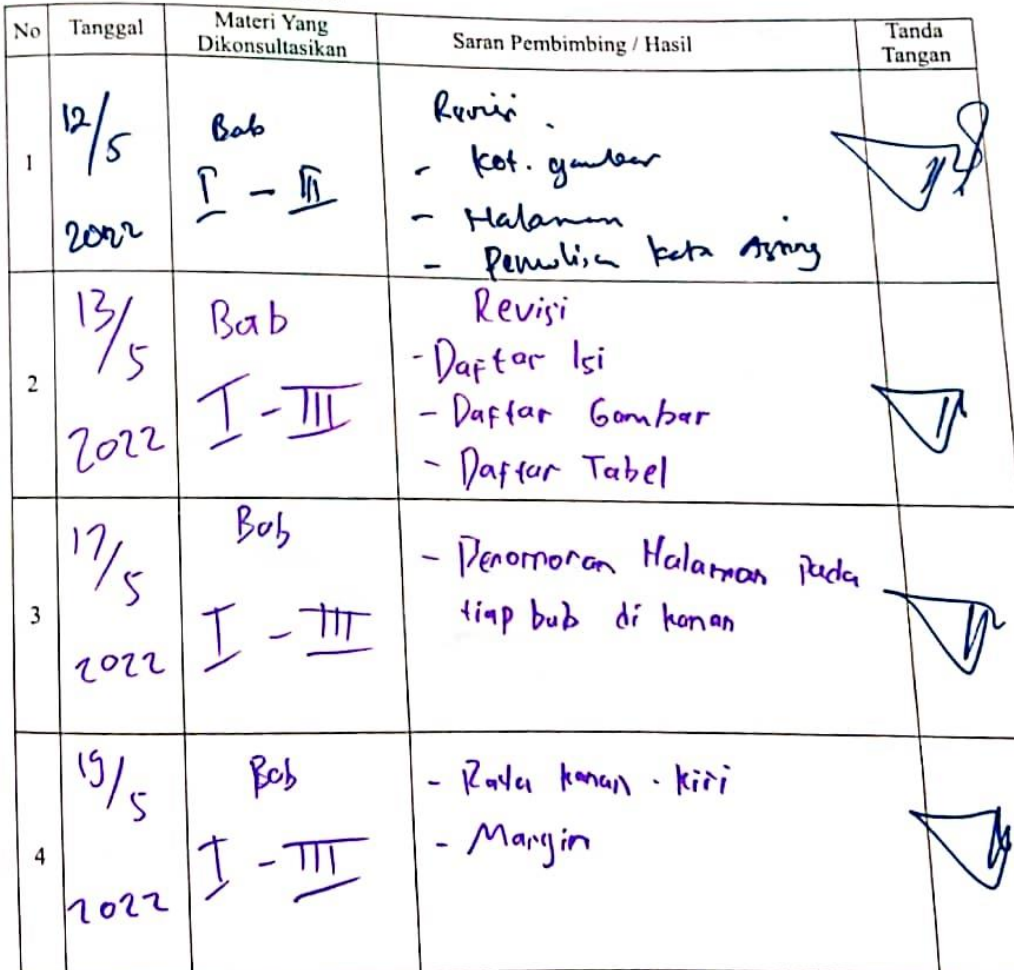 No Tanggal Materi Yang Dikonsultasikan Saran Pembimbing / Hasil Tanda Tangan
1
12/5
2022
Bab
I - III
Revisi
- Ket. gambar
- Halaman
- Penulisan kata Asing
2
13/5
2022
Bab
I - III
Revisi
- Daftar Isi
- Daftar Gambar
- Daftar Tabel
3
17/5
2022
Bab
I - III
- Penomoran Halaman pada
tiap bab di kanan
4
19/5
2022
Bab
I - III
- Rata kanan - kiri
- Margin